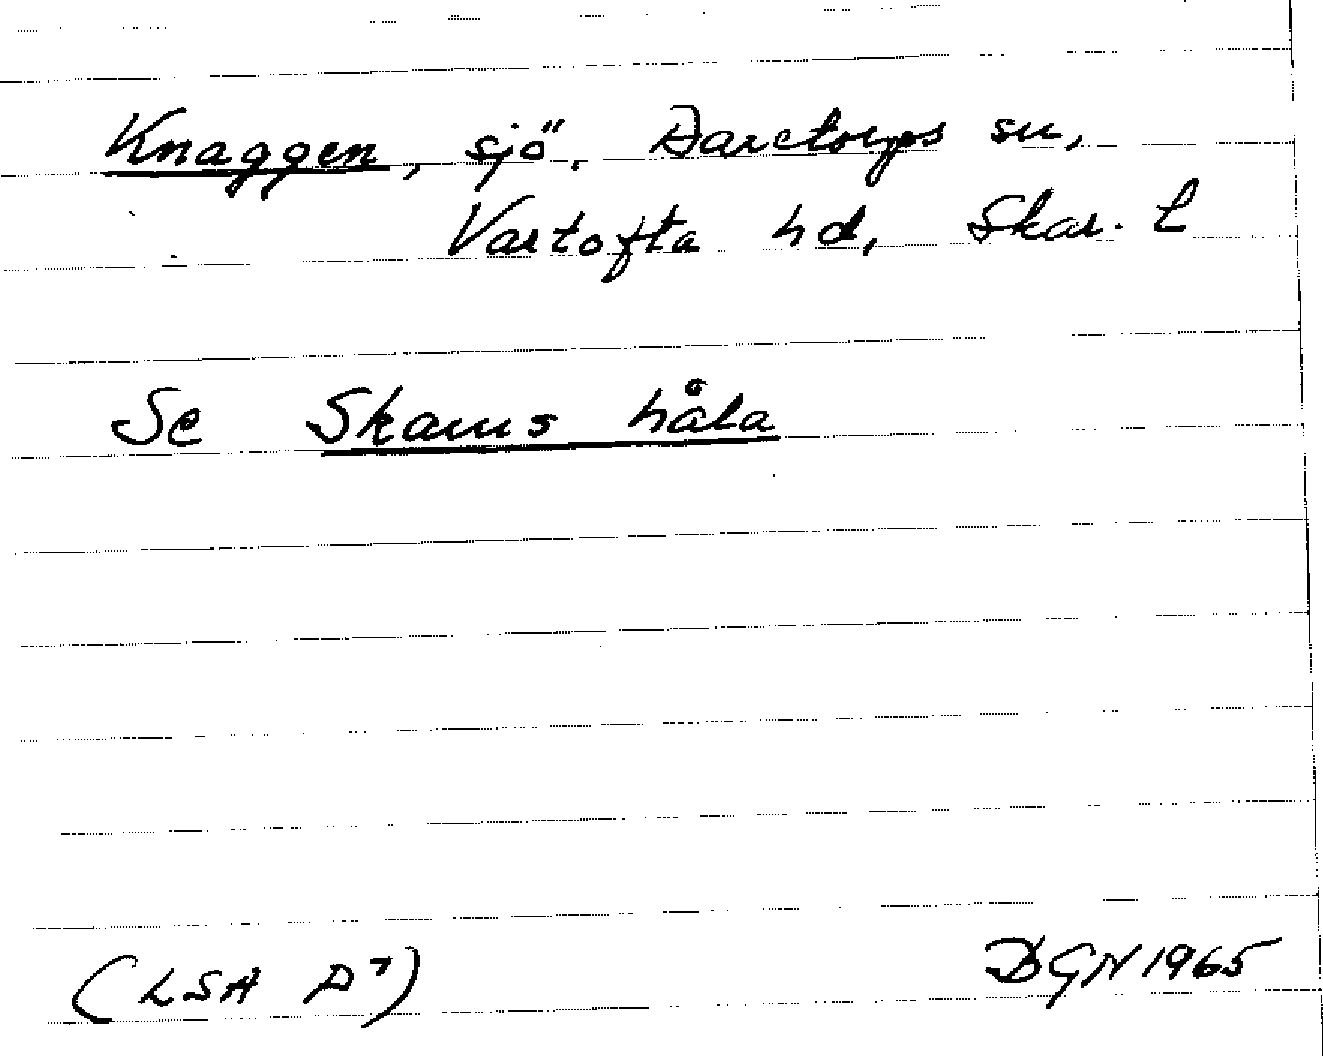 Knaggen, sjö. Daretorps sn,
Vartofta hd, Skar. L
Se Skams håla
(LSA D7)
DGN 1965